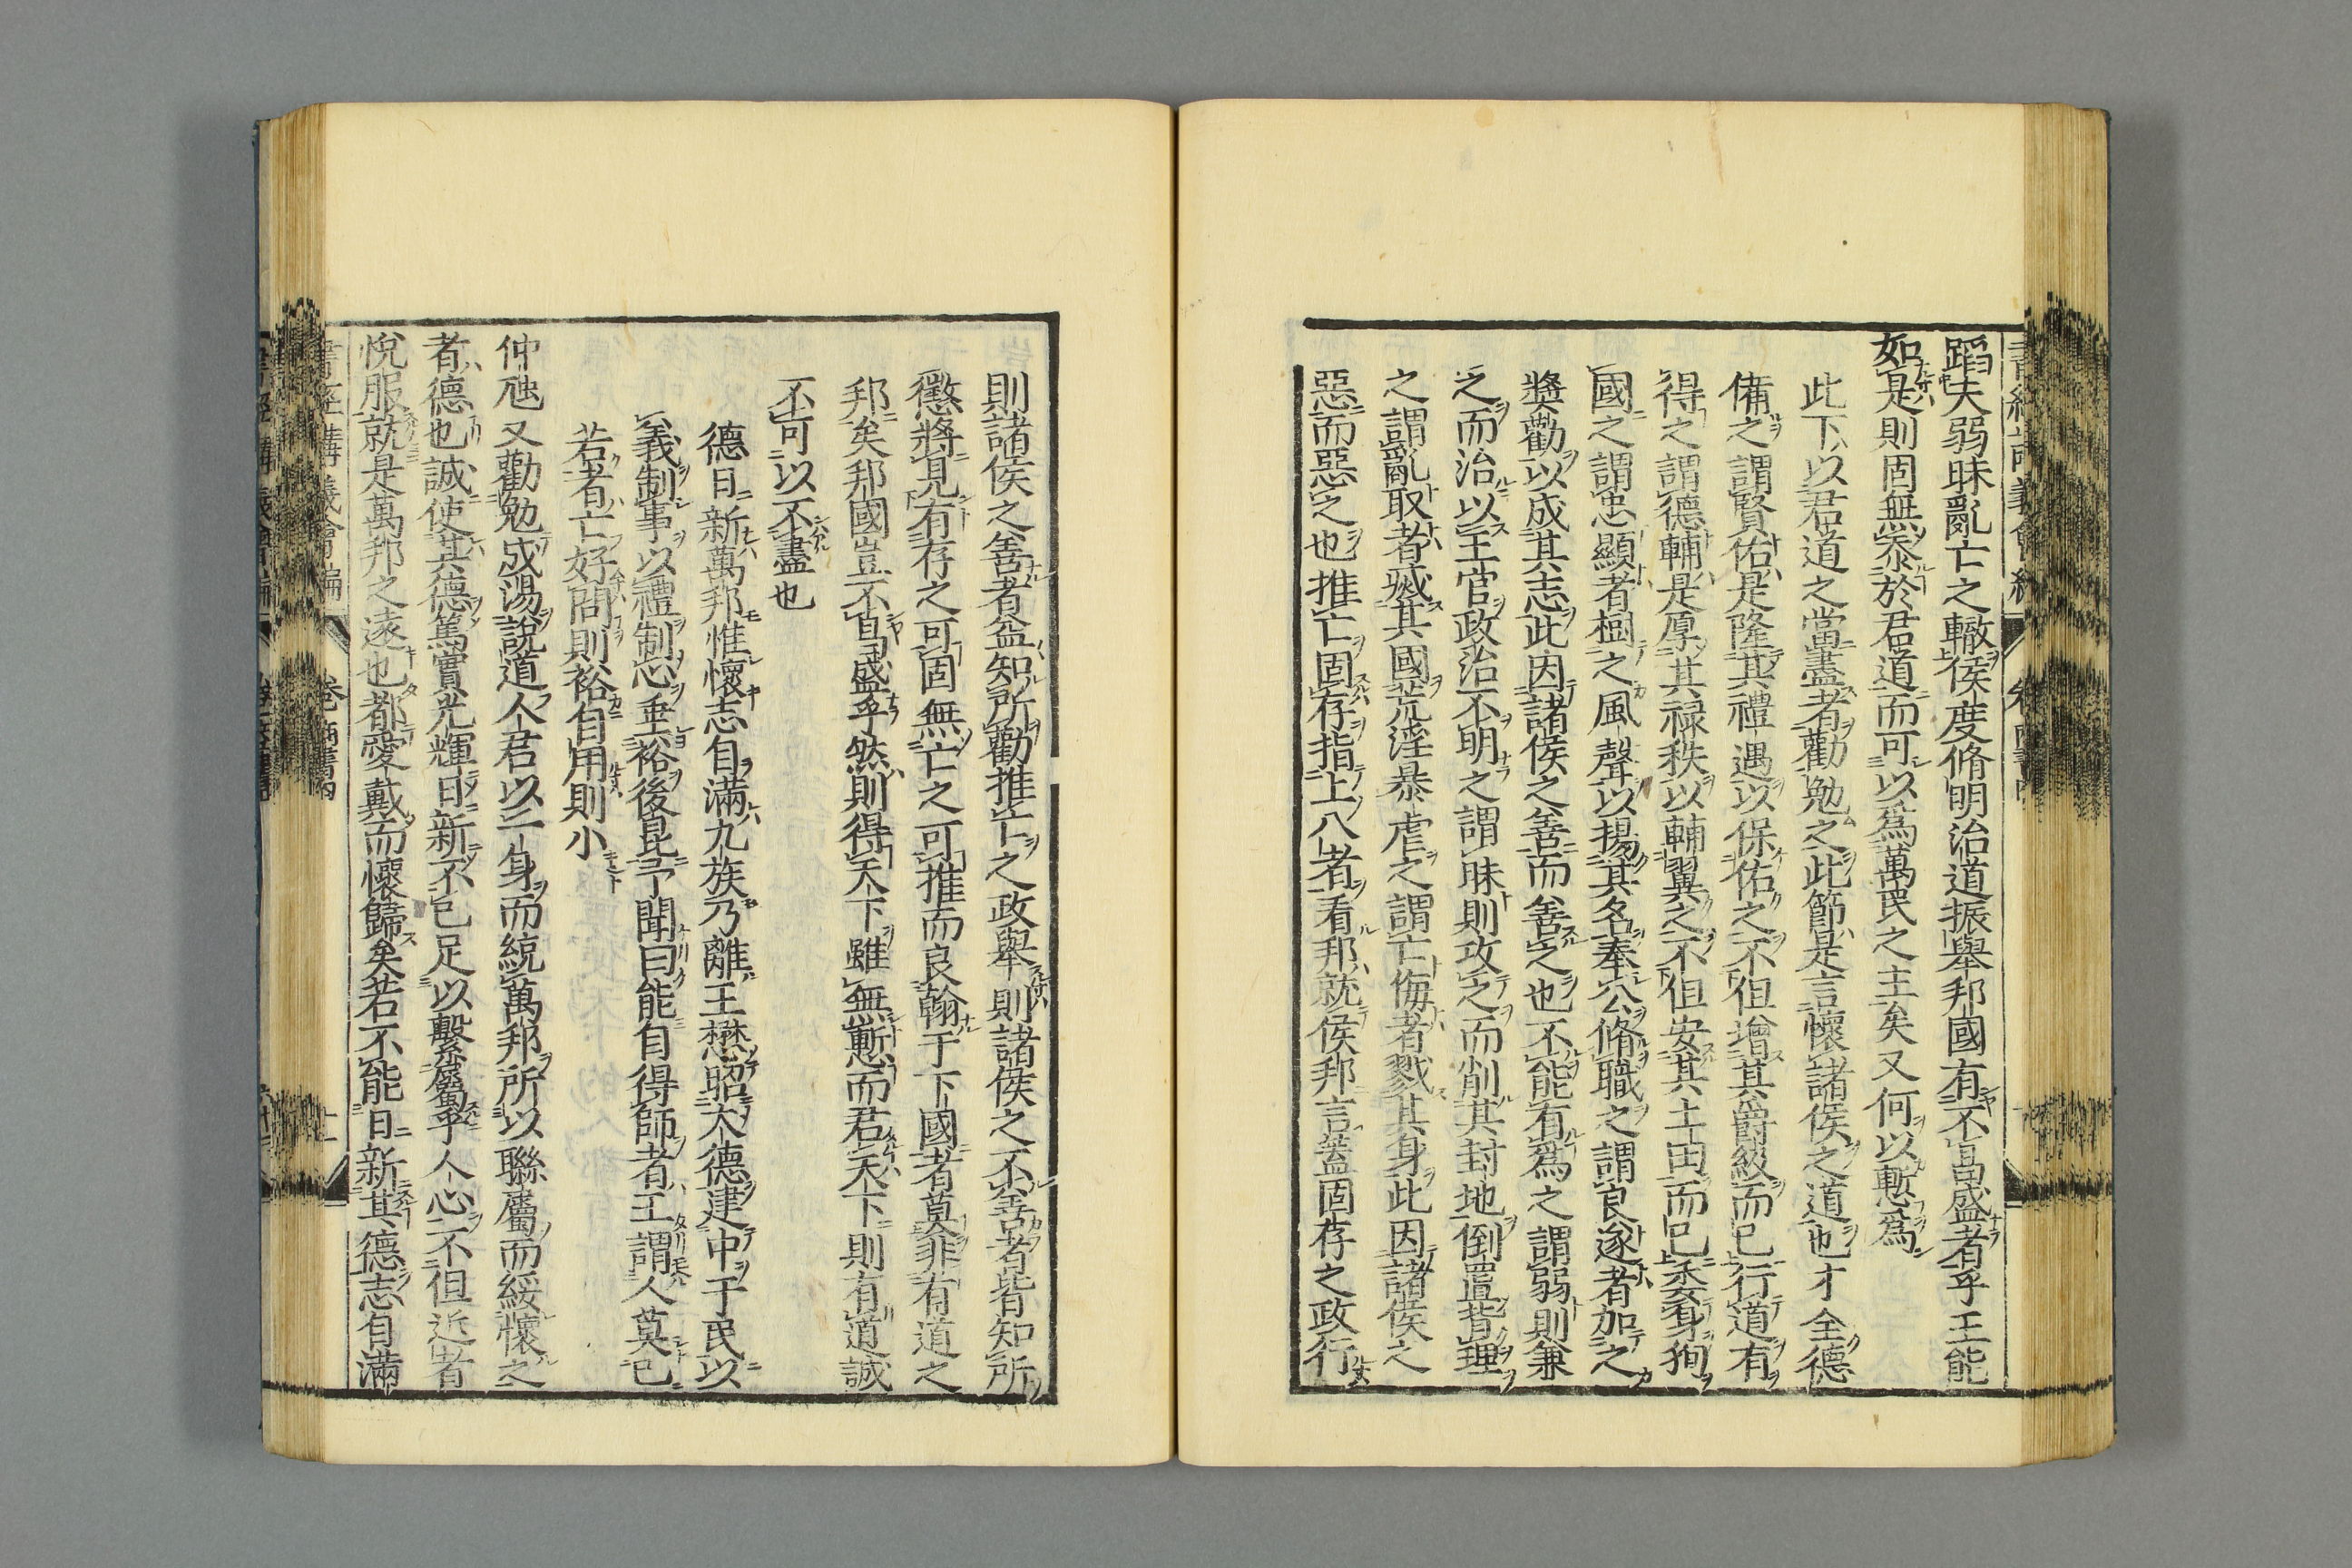 蹈夫弱昧亂亡之轍侯度脩明治道振舉邦國有不昌盛者乎王能
如是則固無忝於君道而可以爲萬民之主矣又何以慙爲
此下以君道之當盡者勸勉之此節是言懷諸侯之道也才全德
備之謂賢佑是隆其禮遇以保佑之不但增其爵級而已行道有
得之謂德輔是厚其祿秩以輔翼之不但安其土田而已委身狥
國之謂忠顯者樹之風聲以揚其名奉公脩職之謂良遂者加之
奬勸以成其志此因諸侯之善而善之也不能有爲之謂弱則兼
之而治以王官政治不明之謂昧則攻之而削其封地倒置背理
之謂亂取者滅其國荒淫暴虐之謂亡侮者戮其身此因諸侯之
惡而惡之也推亡固存指上八者看邦就侯邦言蓋固存之政行
則諸侯之善者益知所勸推亡之政舉則諸侯之不善者皆知所
懲將見有存之可固無亡之可推而良翰于下國者莫非有道之
邦矣邦國豈不昌盛乎然則得天下雖無慙而君天下則有道誠
不可以不盡也
德日新萬邦惟懷志自滿九族乃離王懋昭大德建中于民以
義制事以禮制心垂裕後昆予聞曰能自得師者王謂人莫己
若者亡好問則裕自用則小
仲虺又勸勉成湯說道人君以一身而統萬邦所以聯屬而綏懷之
者德也誠使其德篤實光輝日新不已足以繫屬乎人心不但近者
悅服就是萬邦之遠也都愛戴而懷歸矣若不能日新其德志自滿